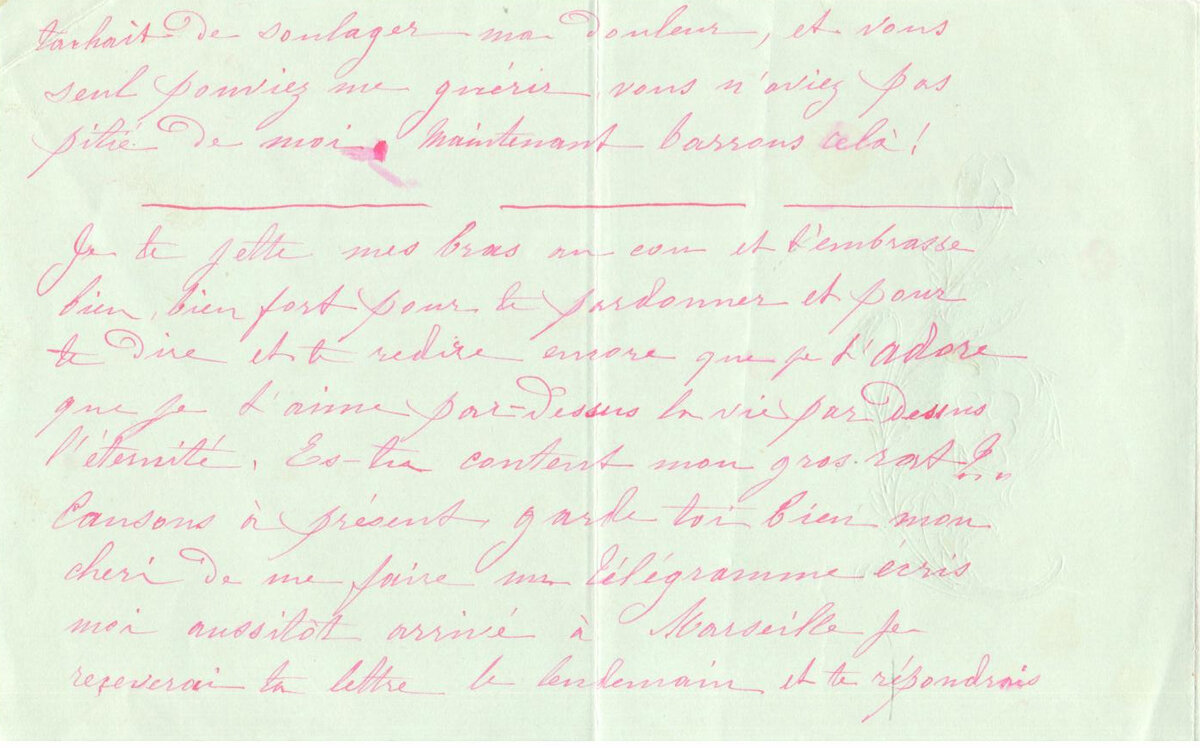 tachait de soulager ma douleur, et vous
seul pouviez me guérir vous n'aviez pas
pitié de moi. Maintenant barrons celà!
Je te jette mes bras au cou et t'embrasse
bien, bien fort pour te pardonner et pour
te dire et te redire encore que je t'adore
que je t'aime par-dessus la vie par dessus
l'éternité. Es-tu content mon gros-rat?...
Causons à présent, garde toi bien mon
cheri de me faire un télégramme écris
moi aussitôt arrivé à Marseille je
reçeverai ta lettre le lendemain et te répondrais